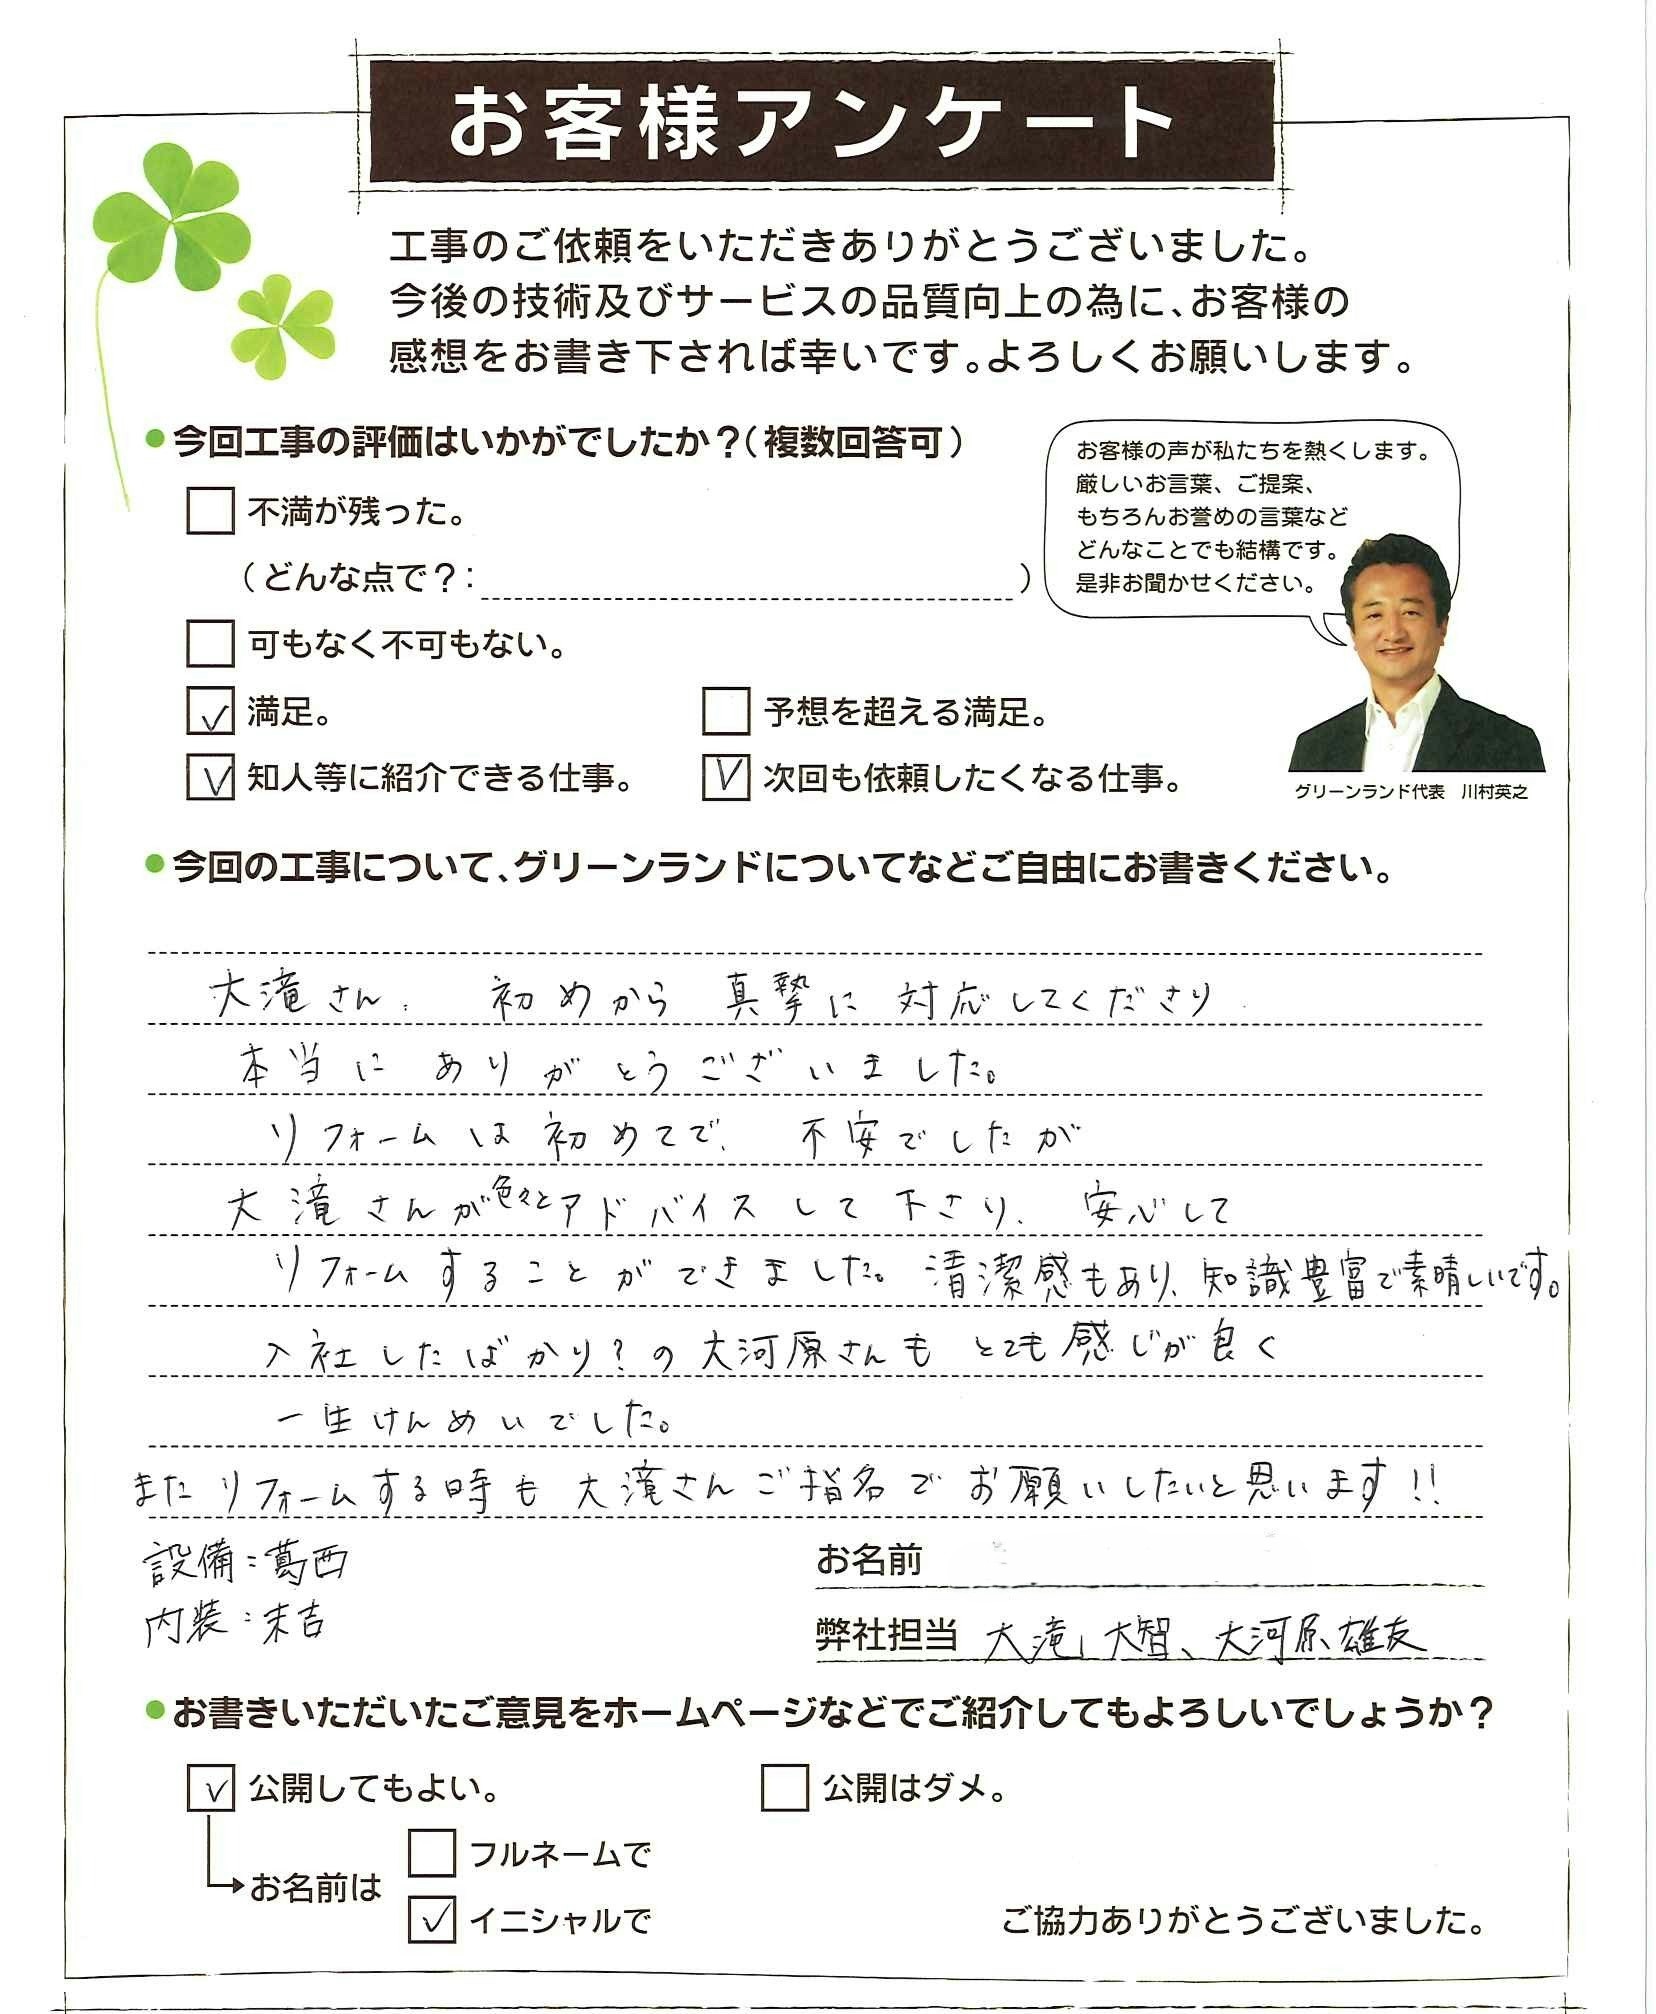 お客様アンケート
工事のご依頼をいただきありがとうございました。
今後の技術及びサービスの品質向上の為に、お客様の
感想をお書き下されば幸いです。よろしくお願いします。
●今回工事の評価はいかがでしたか？（複数回答可）
お客様の声が私たちを熱くします。
厳しいお言葉、ご提案、
もちろんお誉めの言葉など
どんなことでも結構です。
是非お聞かせください。
不満が残った。
（どんな点で？：）
可もなく不可もない。
満足。
予想を超える満足。
知人等に紹介できる仕事。
次回も依頼したくなる仕事。
グリーンランド代表 川村英之
●今回の工事について、グリーンランドについてなどご自由にお書きください。
大滝さん、初めから 真摯に 対応してくださり
本当に ありがとうございました。
リフォームは初めてで、不安でしたが
大滝さんが色々とアドバイスして下さり、安心して
リフォームすることができました。清潔感もあり、知識豊富で素晴しいです。
入社したばかり？の大河原さんもとても感じが良く
一生けんめいでした。
またリフォームする時も大滝さんご指名でお願いしたいと思います!!
設備：葛西
内装：末吉
お名前
弊社担当 大滝 大智、大河原 雄友
●お書きいただいたご意見をホームページなどでご紹介してもよろしいでしょうか？
公開してもよい。
公開はダメ。
お名前は
フルネームで
イニシャルで
ご協力ありがとうございました。